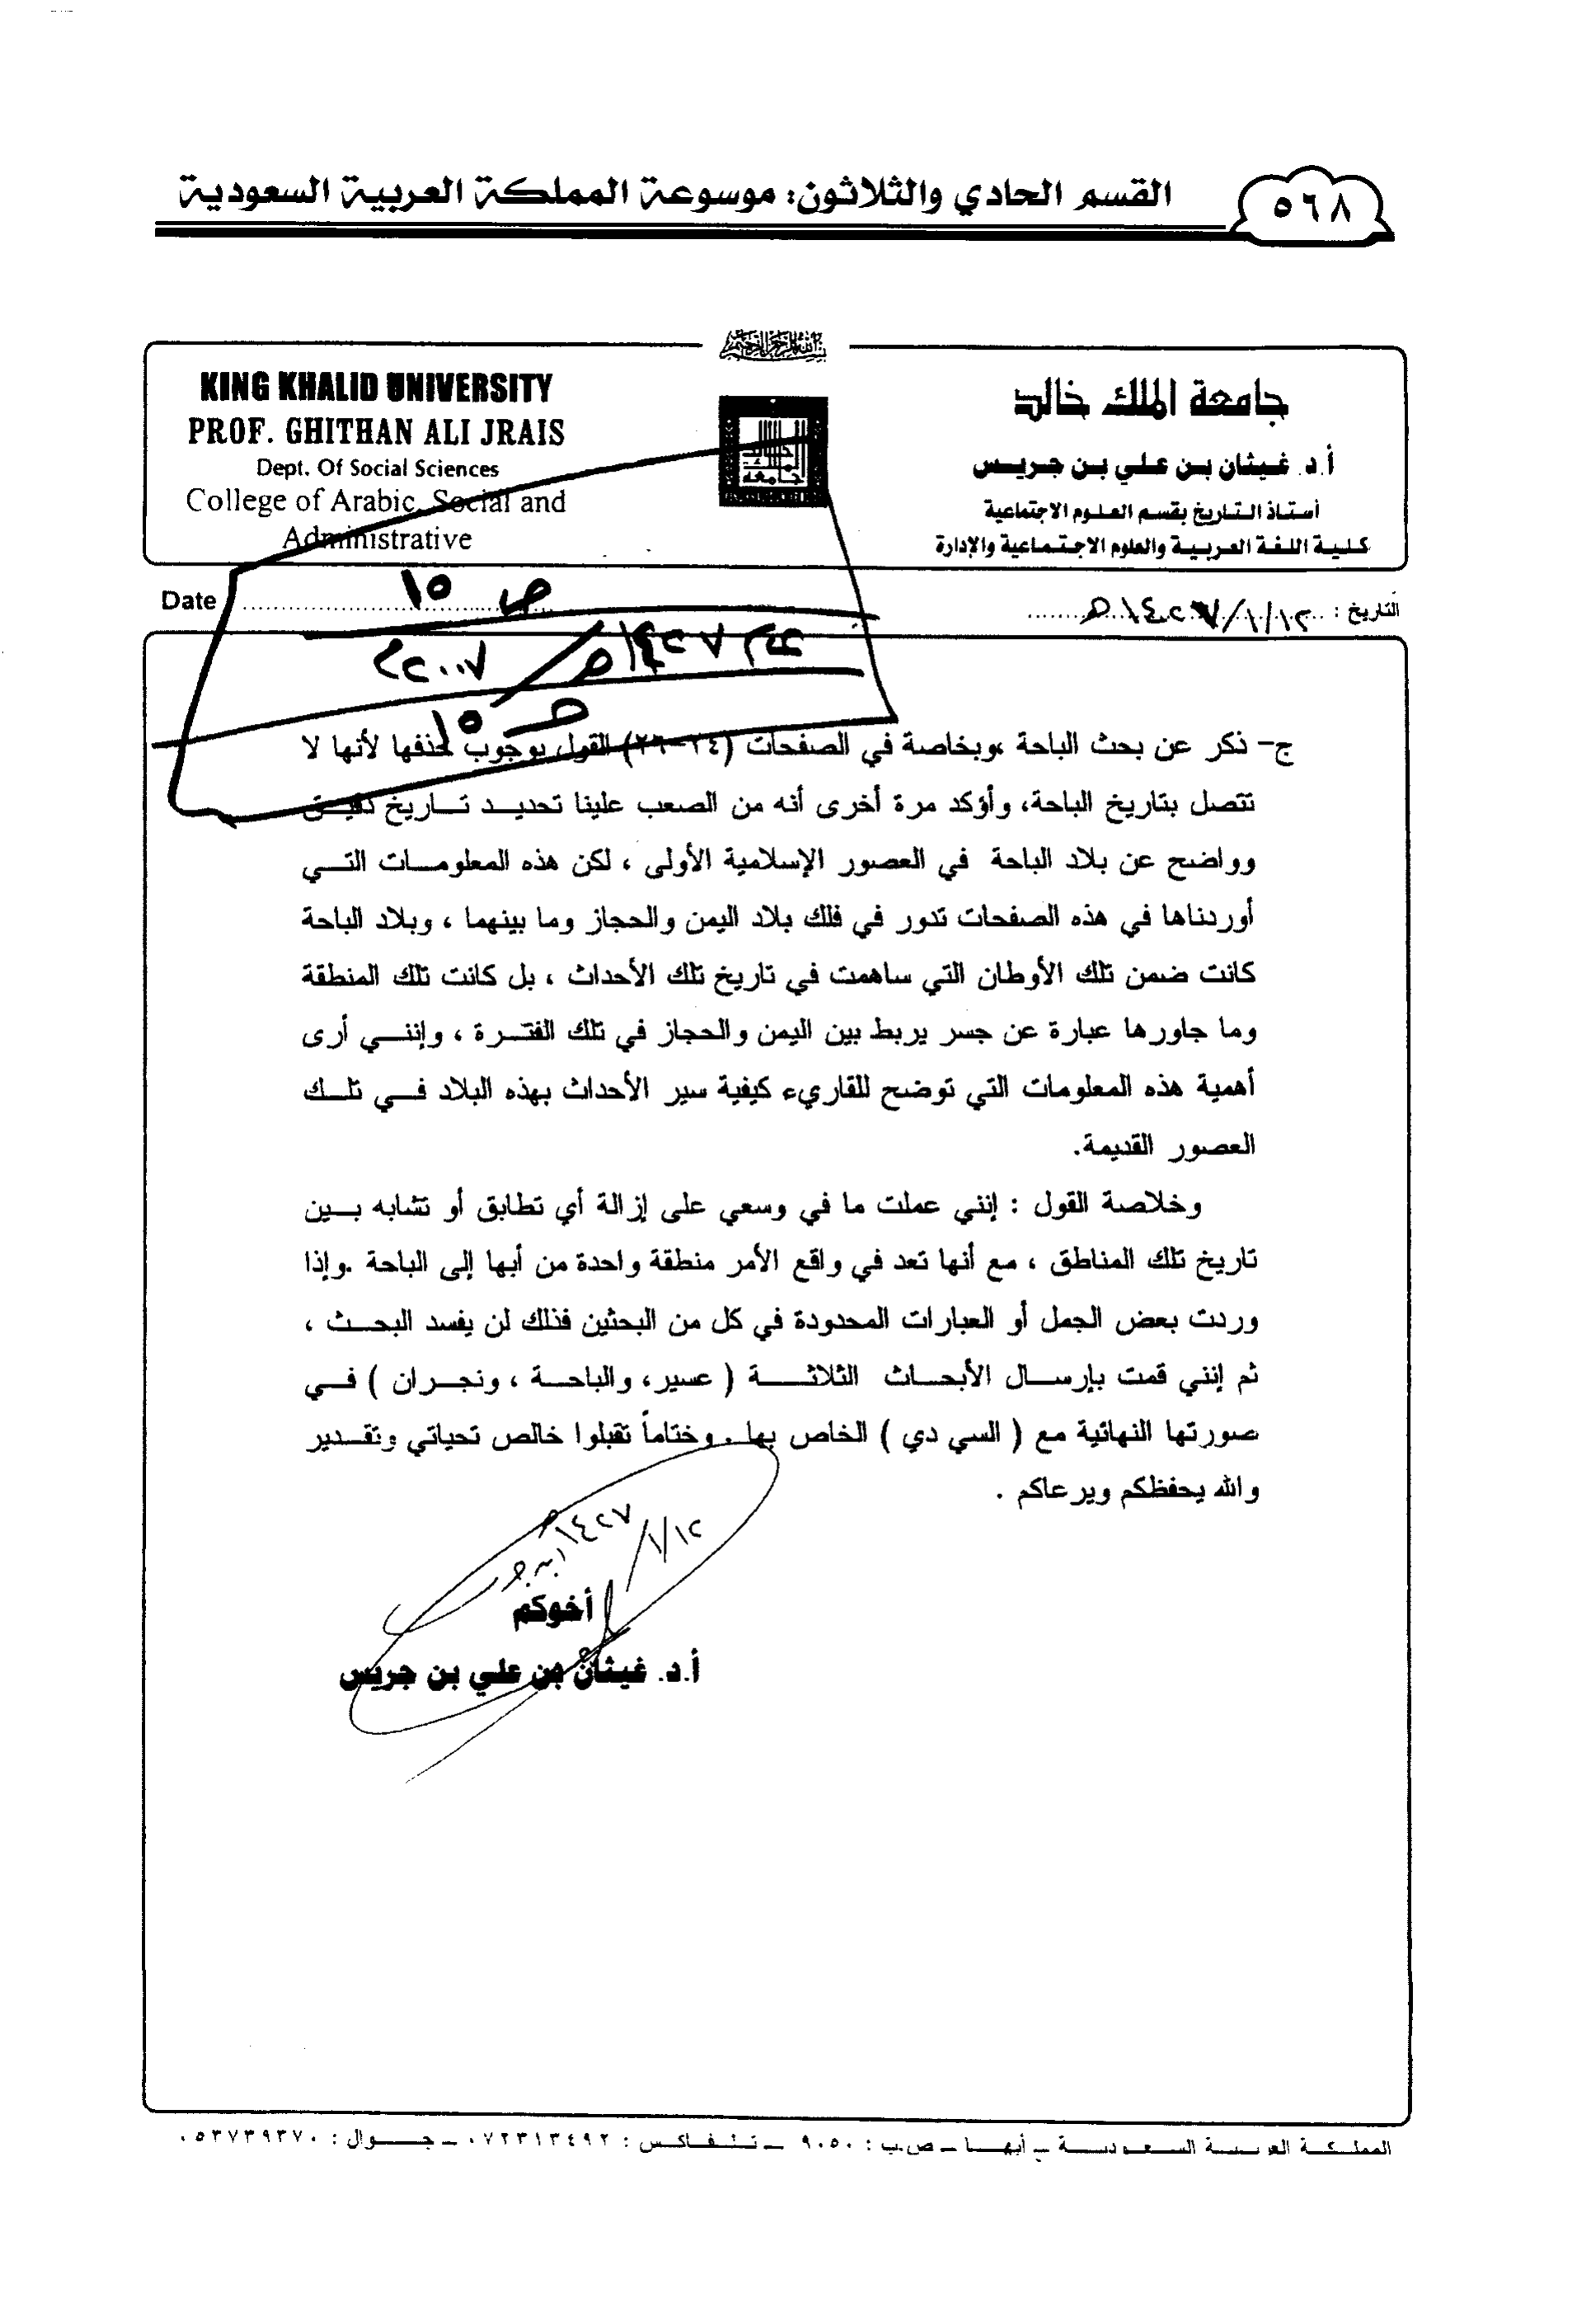 ٥٦٨
القسم الحادي والثلاثون: موسوعة المملكة العربية السعودية
بسم الله الرحمن الرحيم
KING KHALID UNIVERSITY
PROF. GHITHAN ALI JRAIS
Dept. Of Social Sciences
College of Arabic, Social and
Administrative
جامعة الملك خالد
أ.د. غيثان بن علي بن جريس
أستاذ التاريخ بقسم العلوم الاجتماعية
كلية اللغة العربية والعلوم الاجتماعية والإدارة
التاريخ : ١٢/١/١٤٢٧هـ
Date
ص ١٥
٢٠٠٧م
ص ١٥
ج- ذكر عن بحث الباحة ،وبخاصة في الصفحات (٢٤-٢٦) القول بوجوب حذفها لأنها لا
تتصل بتاريخ الباحة، وأؤكد مرة أخرى أنه من الصعب علينا تحديد تاريخ دقيق
وواضح عن بلاد الباحة في العصور الإسلامية الأولى ، لكن هذه المعلومات التي
أوردناها في هذه الصفحات تدور في فلك بلاد اليمن والحجاز وما بينهما ، وبلاد الباحة
كانت ضمن تلك الأوطان التي ساهمت في تاريخ تلك الأحداث ، بل كانت تلك المنطقة
وما جاورها عبارة عن جسر يربط بين اليمن والحجاز في تلك الفترة ، وإنني أرى
أهمية هذه المعلومات التي توضح للقاريء كيفية سير الأحداث بهذه البلاد في تلك
العصور القديمة.
وخلاصة القول : إنني عملت ما في وسعي على إزالة أي تطابق أو تشابه بين
تاريخ تلك المناطق ، مع أنها تعد في واقع الأمر منطقة واحدة من أبها إلى الباحة .وإذا
وردت بعض الجمل أو العبارات المحدودة في كل من البحثين فذلك لن يفسد البحث ،
ثم إنني قمت بإرسال الأبحاث الثلاثة ( عسير، والباحة ، ونجران ) في
صورتها النهائية مع ( السي دي ) الخاص بها . وختاماً تقبلوا خالص تحياتي وتقدير
والله يحفظكم ويرعاكم .
١٢/١/١٤٢٧
أخوكم
أ.د. غيثان بن علي بن جريس
المملكة العربية السعودية – أبها – ص.ب : ٩٠٥٠ – تلفاكس : ٠٧٢٣١٣٤٩٢ – جوال : ٠٥٣٧٣٩٣٧٠